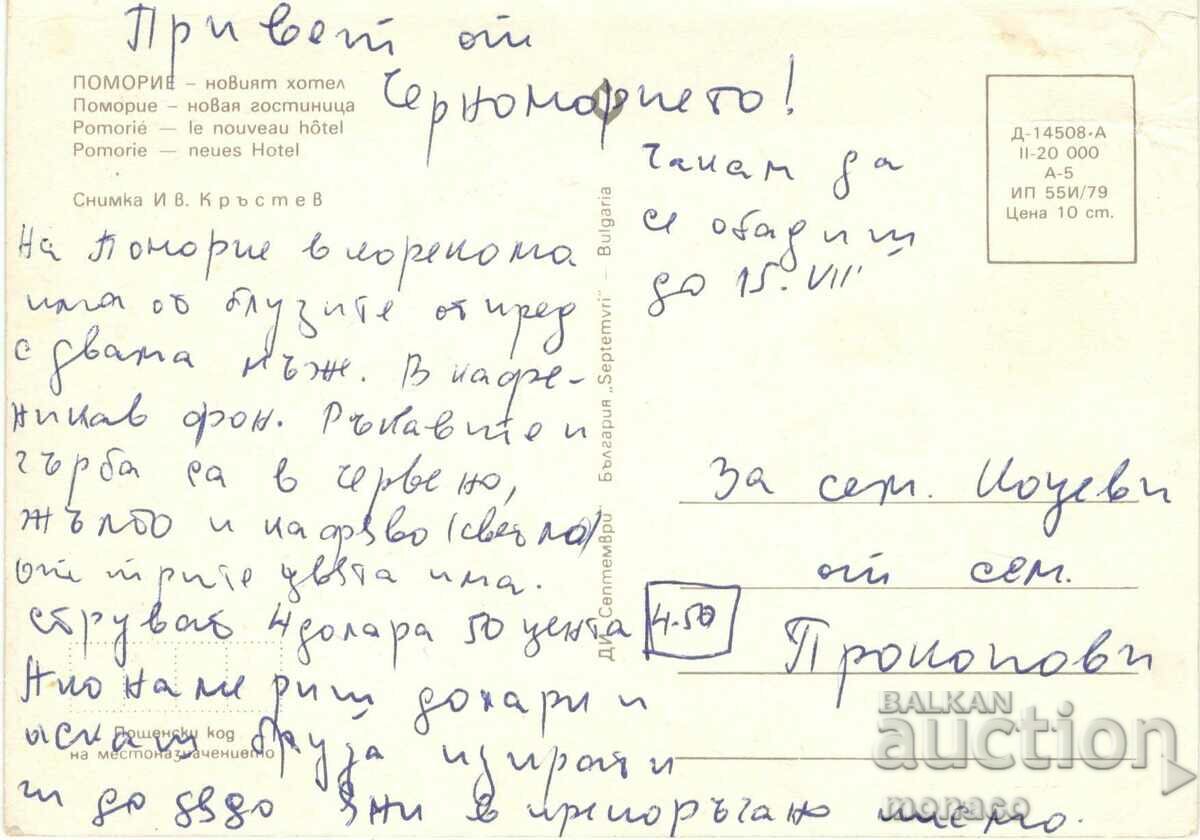 Привет от
Черноморието!
ПОМОРИЕ – новият хотел
Поморие – новая гостиница
Pomorié — le nouveau hôtel
Pomorie — neues Hotel
Снимка Ив. Кръстев
На Поморие в корекома
има от блузите отпред
с двама мъж. В кафе-
никав фон. Ръкавите и
гърба са в червено,
жълто и кафяво (светло)
от трите цвята има.
струват 4 долара 50 цента
4.50
Ако намериш долари и
искаш блуза изпрати
ги до
в препоръчано писмо.
Пощенски код
на местоназначението
ДИ Септември България „Septemvri" – Bulgaria
чакам да
се обадиш
до 15. VII
Д-14508-А
II-20 000
А-5
ИП 55И/79
Цена 10 ст.
За сем. Коцеви
от сем.
Прокопови
BALKAN
auction
monaco